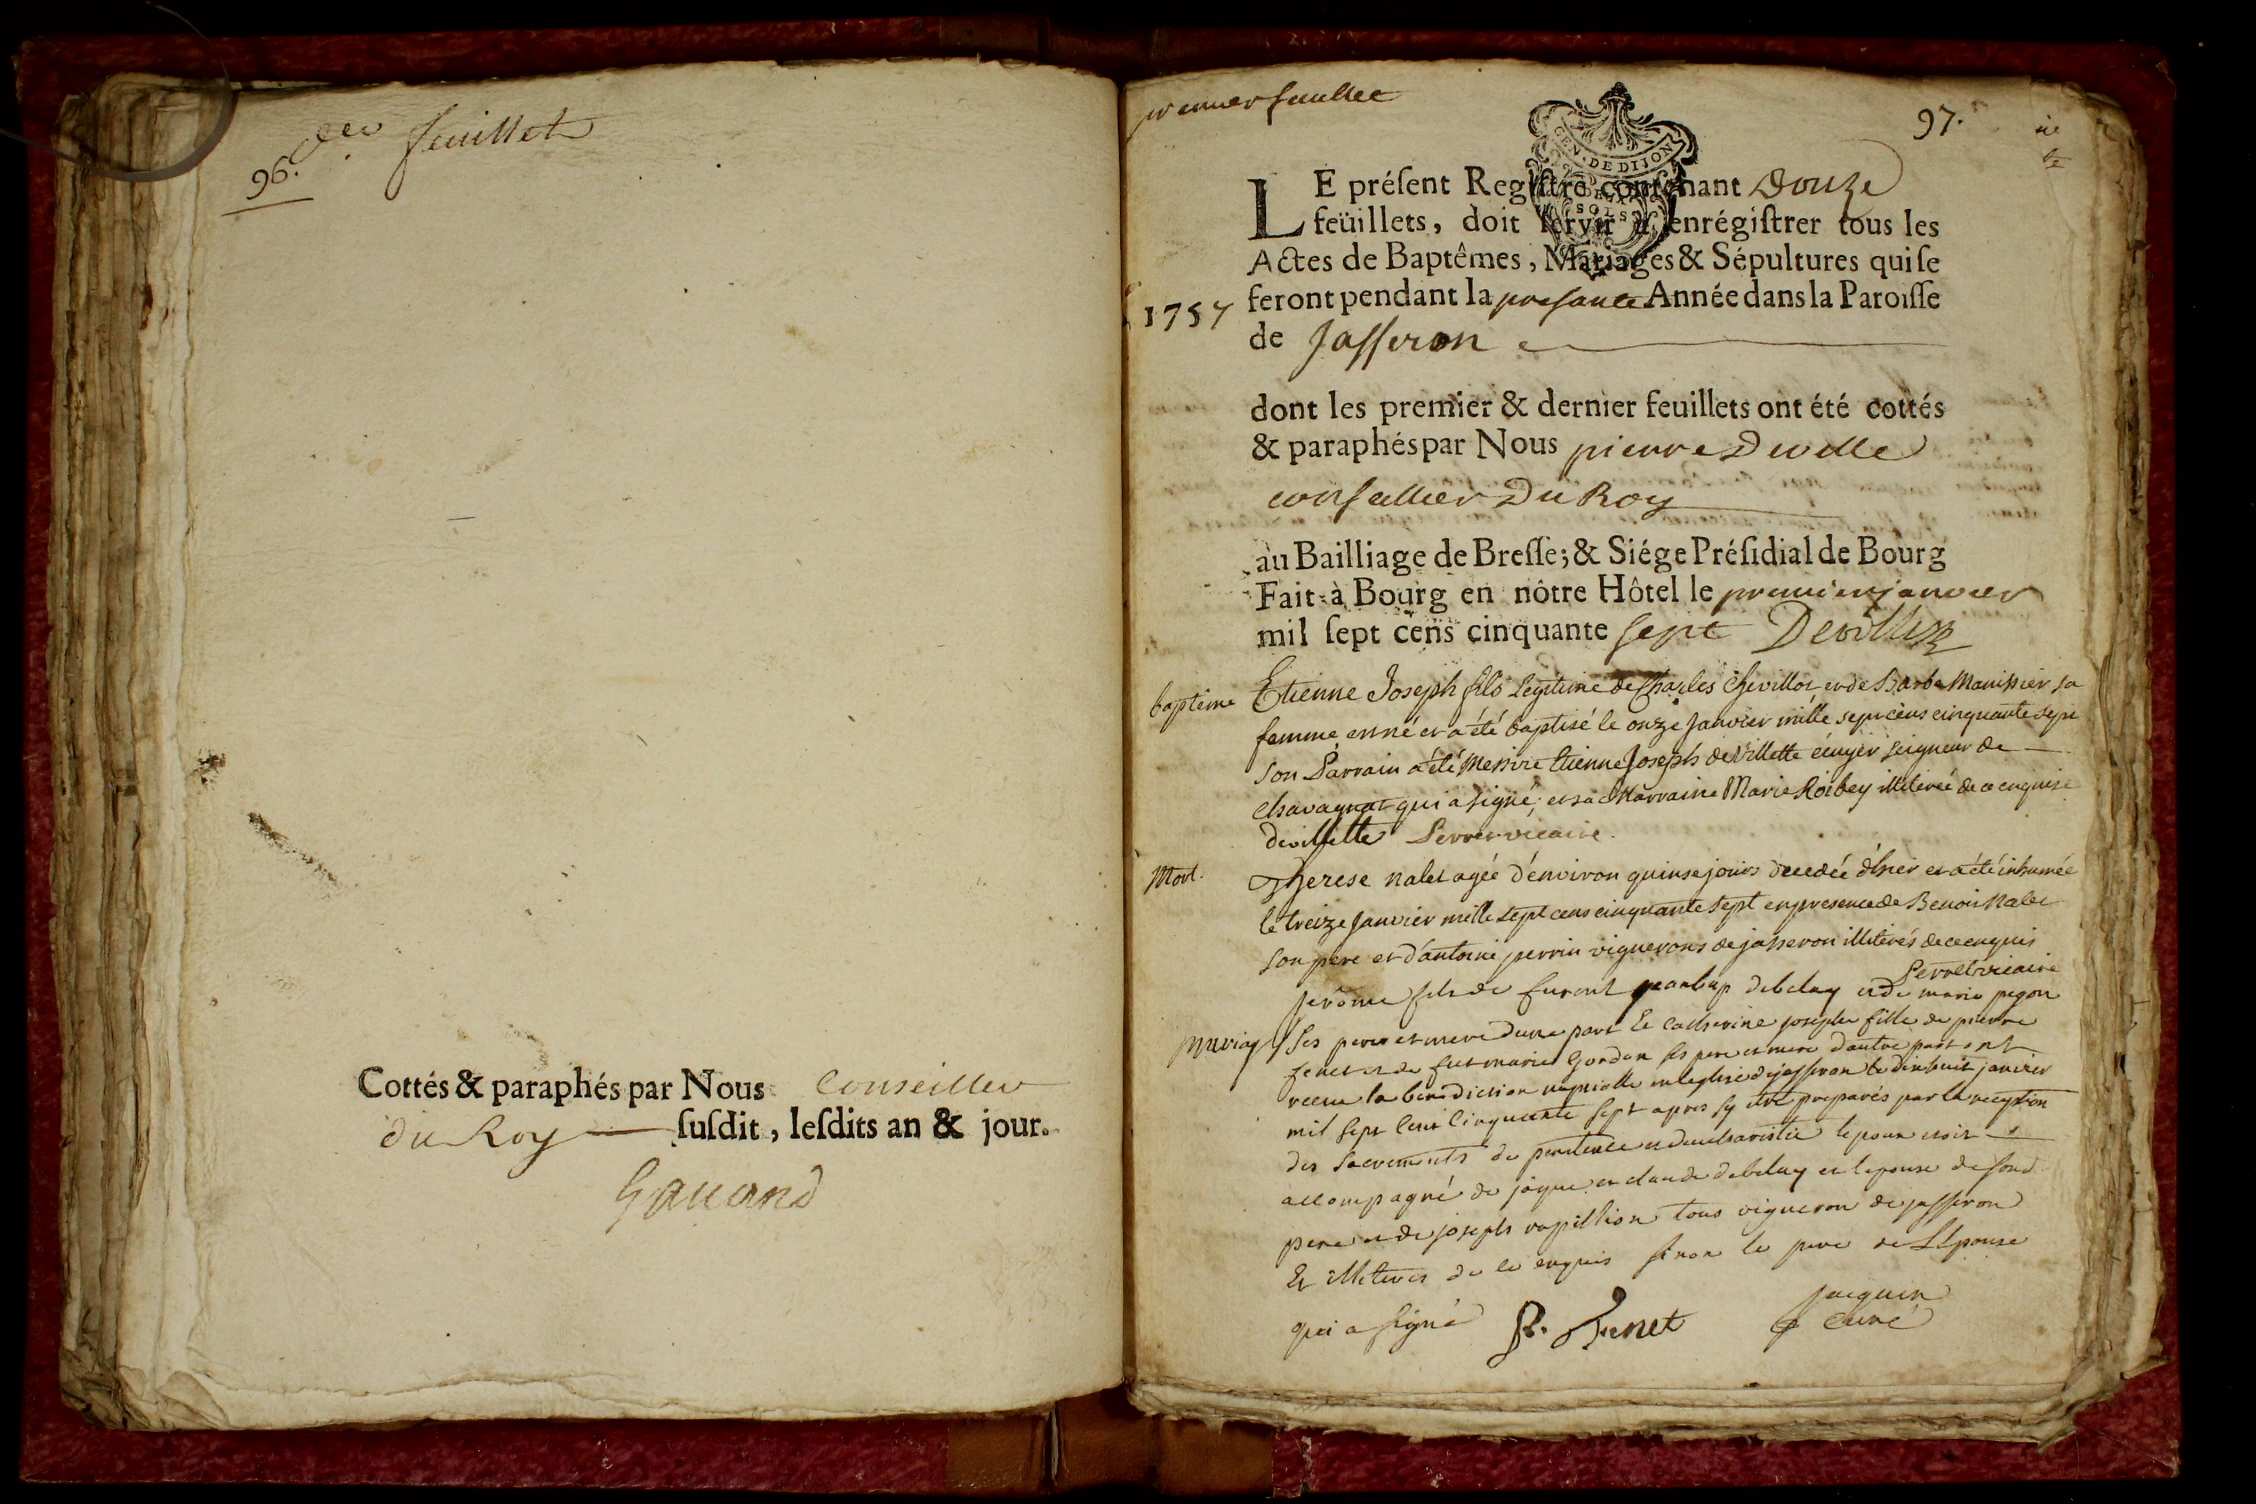 96. der feuillet
Cottés & paraphés par Nous Conseiller
du Roy ſuſdit, leſdits an & jour.
Gauand
premier feuillet
97.
GEN. DE DIJON
SOLS
LE préſent Regiſtre contenant Douze
feüillets, doit ſervir à enrégiſtrer tous les
Actes de Baptêmes, Mariages & Sépultures qui ſe
1757 feront pendant la presante Année dans la Paroiſſe
de Jasseron
dont les premier & dernier feuillets ont été cottés
& paraphés par Nous pierre Deville
conseiller Du Roy
au Bailliage de Breſſe; & Siége Préſidial de Bourg
Fait à Bourg en nôtre Hôtel le premier janvier
mil ſept cens cinquante sept
baptême Etienne Joseph fils Legitime de Charles Chevillot et de Barbe Manissier sa
femme est né et a été baptisé le onze Janvier mille sept cens cinquante sept
Son Parrain a été Messire Etienne Joseph de Villette écuyer seigneur de
Chavagnat qui a signé; et sa Marraine Marie Roibey illiterée de ce enquise
Devillette Perret vicaire.
Mort. Therese nalet agée d'environ quinse jours decedée d'hier et a été inhumée
le treize Janvier mille sept cens cinquante sept en presence de Benoit Nalet
son pere et d'antoine perrin vignerons de jasseron illiterés de ce enquis
Perret vicaire
jerôme fils de furent jeanbap debelay et de marie pegon
mariag ses pere et mere d'une part Et catherine josephe fille de pierre
fenet et de fut marie Gordon ses pere et mere d'autre part ont
receu la benediction nuptialle en leglise de jasseron le dixhuit janvier
mil sept Cent Cinquante sept apres sy etre preparés par la reception
des sacrements de penitence et d'eucharistie lepoux etoit
accompagné de jaque et claude debelay et lepouse de sond
pere et de joseph vapillion tous vigneron de jasseron
Et illiteres de ce enquis sinon le pere de Lepouse
qui a signé P. Fenet jacquin
curé